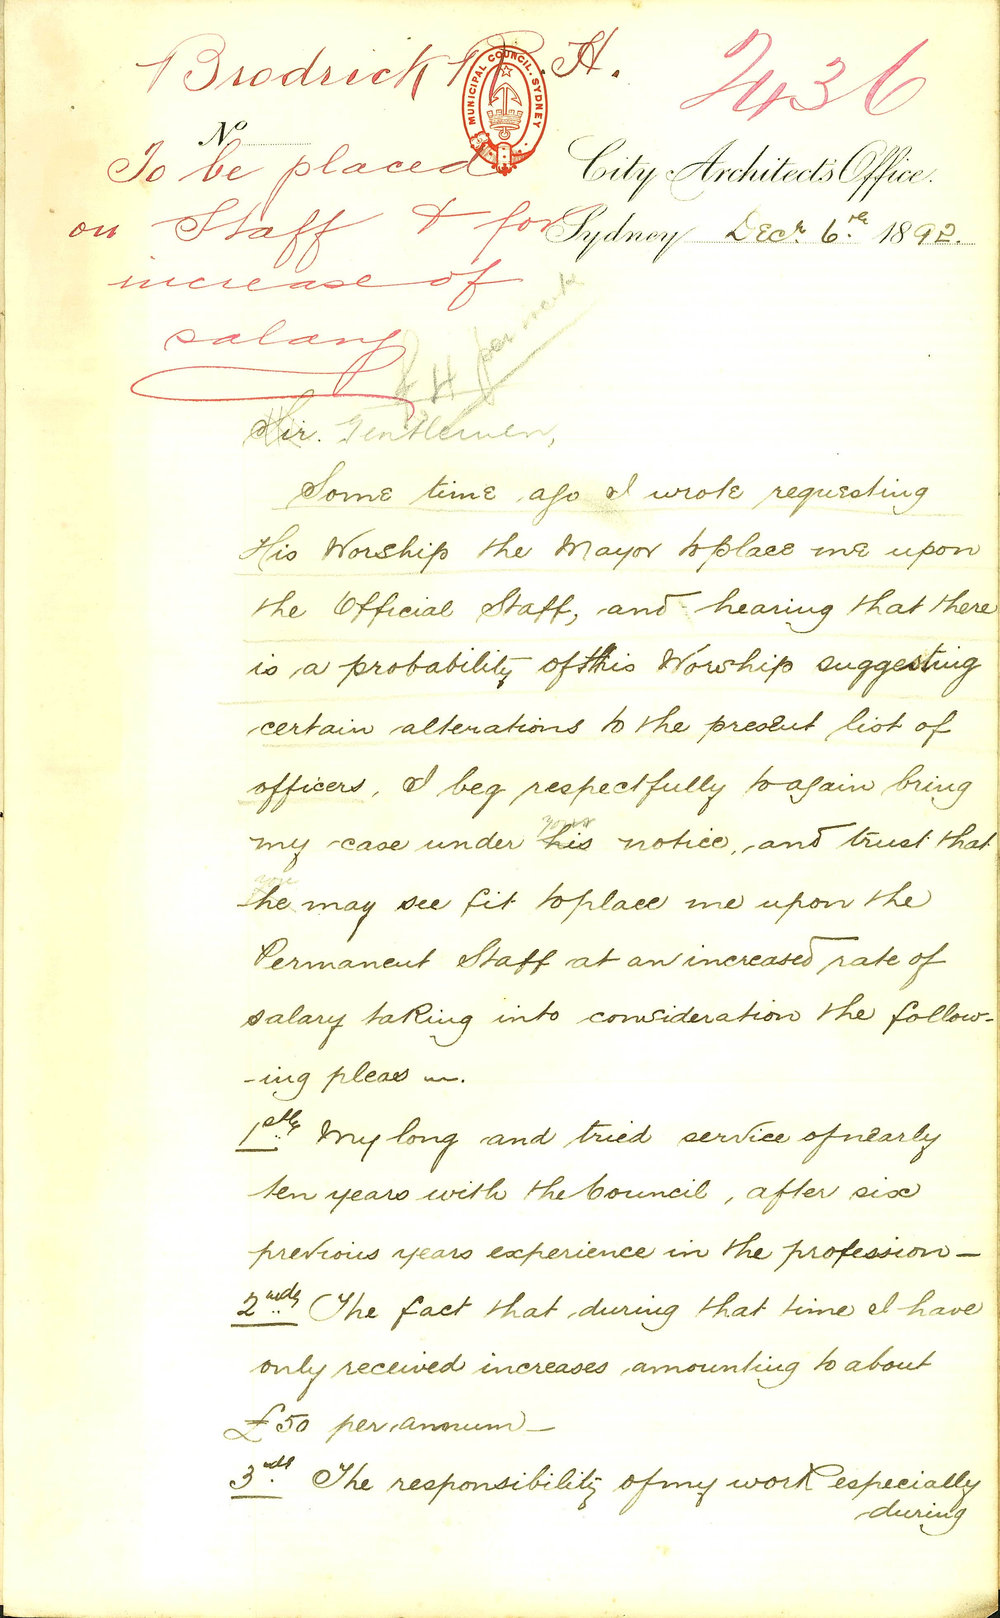 Brodrick H.
2436
MUNICIPAL COUNCIL. SYDNEY
No
City Architect's Office.
Sydney Decr. 6th. 1892.
To be placed
on Staff & for
increase of
salary
per week
Sir. Gentlemen,
Some time ago I wrote requesting
His Worship the Mayor to place me upon
the Official Staff, and hearing that there
is a probability of His Worship suggesting
certain alterations to the present list of
officers, I beg respectfully to again bring
your
my case under his notice, and trust that
you
he may see fit to place me upon the
Permanent Staff at an increased rate of
salary taking into consideration the follow-
-ing pleas —.
1stly My long and tried service of nearly
ten years with the Council, after six
previous years experience in the profession —
2ndly The fact that during that time I have
only received increases amounting to about
£50 per annum —
3rdly The responsibility of my work especially
during